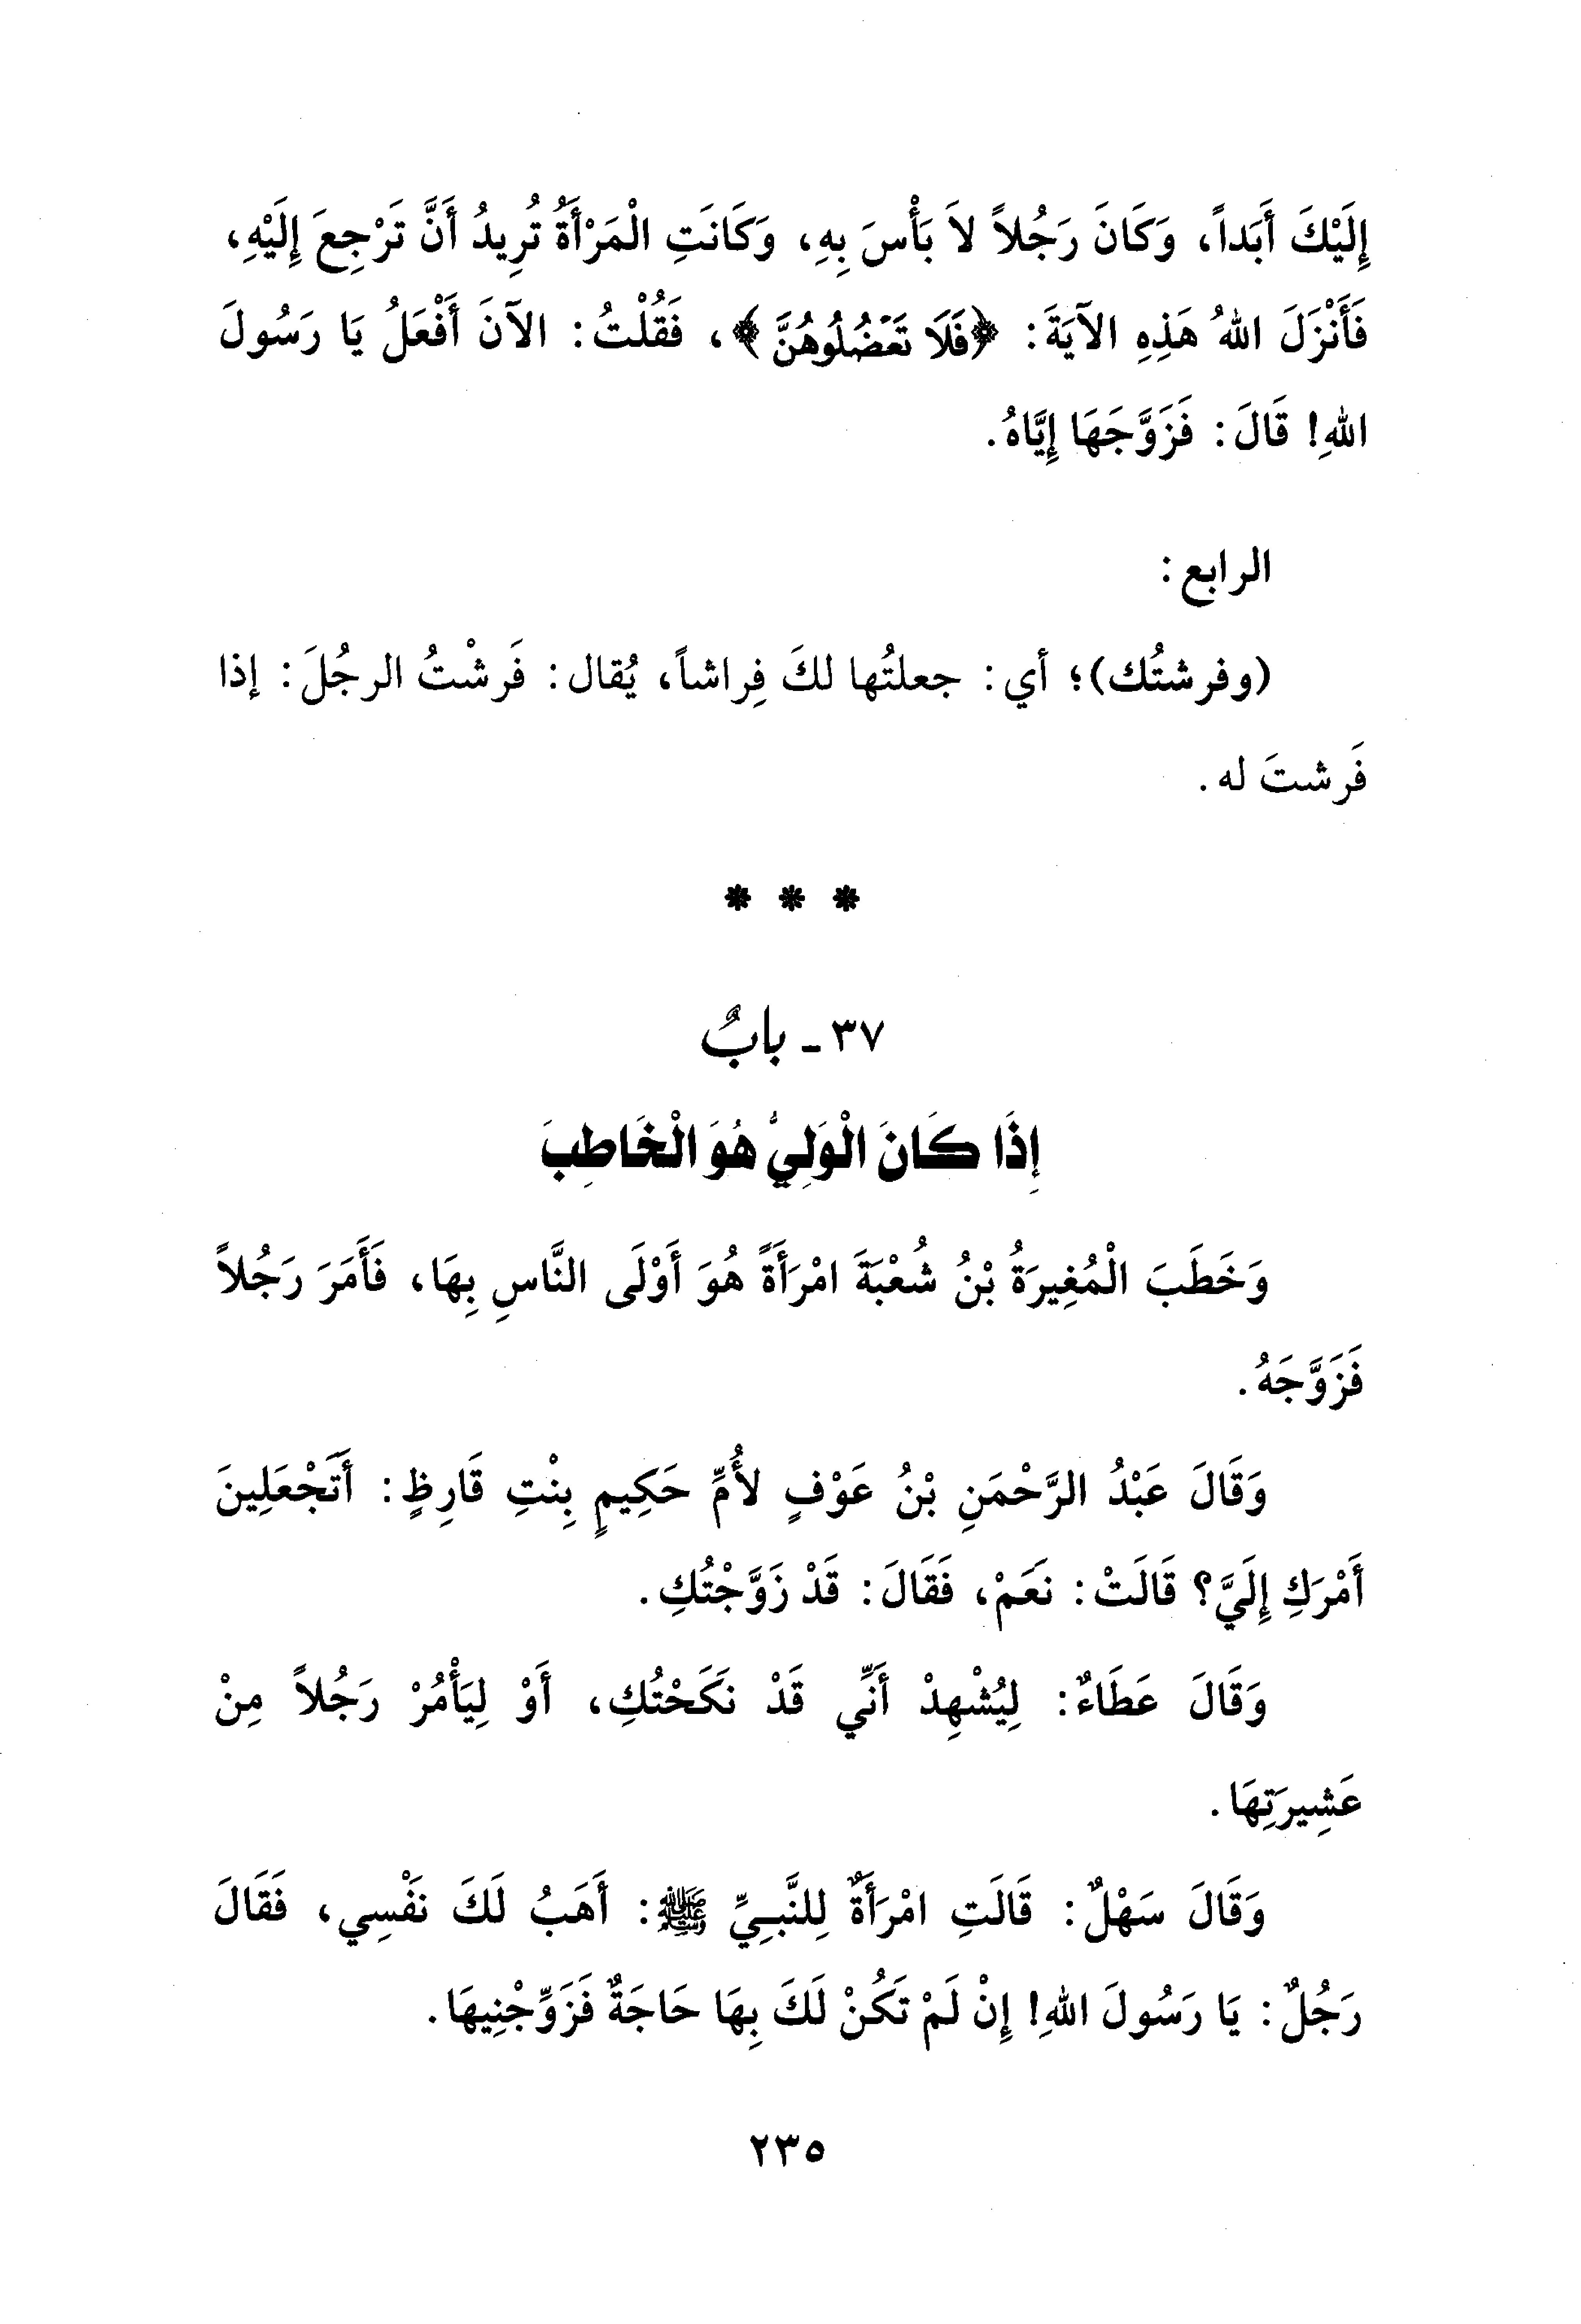 إِلَيْكَ أَبَداً، وَكَانَ رَجُلاً لاَ بَأْسَ بِهِ، وَكَانَتِ الْمَرْأَةُ تُرِيدُ أَنَّ تَرْجِعَ إِلَيْهِ،
فَأَنْزَلَ اللهُ هَذِهِ الآيَةَ: ﴿فَلَا تَعْضُلُوهُنَّ﴾، فَقُلْتُ: الآنَ أَفْعَلُ يَا رَسُولَ
اللهِ! قَالَ: فَزَوَّجَهَا إِيَّاهُ.
الرابع:
(وفرشتُك)؛ أي: جعلتُها لكَ فِراشاً، يُقال: فَرشْتُ الرجُلَ: إذا
فَرشتَ له.
* * *
٣٧ - بابٌ
إِذَا كَانَ الْوَلِيُّ هُوَ الْخَاطِبَ
وَخَطَبَ الْمُغِيرَةُ بْنُ شُعْبَةَ امْرَأَةً هُوَ أَوْلَى النَّاسِ بِهَا، فَأَمَرَ رَجُلاً
فَزَوَّجَهُ.
وَقَالَ عَبْدُ الرَّحْمَنِ بْنُ عَوْفٍ لأُمِّ حَكِيمٍ بِنْتِ قَارِظٍ: أَتَجْعَلِينَ
أَمْرَكِ إِلَيَّ؟ قَالَتْ: نَعَمْ، فَقَالَ: قَدْ زَوَّجْتُكِ.
وَقَالَ عَطَاءٌ: لِيُشْهِدْ أَنِّي قَدْ نَكَحْتُكِ، أَوْ لِيَأْمُرْ رَجُلاً مِنْ
عَشِيرَتِهَا.
وَقَالَ سَهْلٌ: قَالَتِ امْرَأَةٌ لِلنَّبِيِّ ﷺ: أَهَبُ لَكَ نَفْسِي، فَقَالَ
رَجُلٌ: يَا رَسُولَ اللهِ! إِنْ لَمْ تَكُنْ لَكَ بِهَا حَاجَةٌ فَزَوِّجْنِيهَا.
٢٣٥